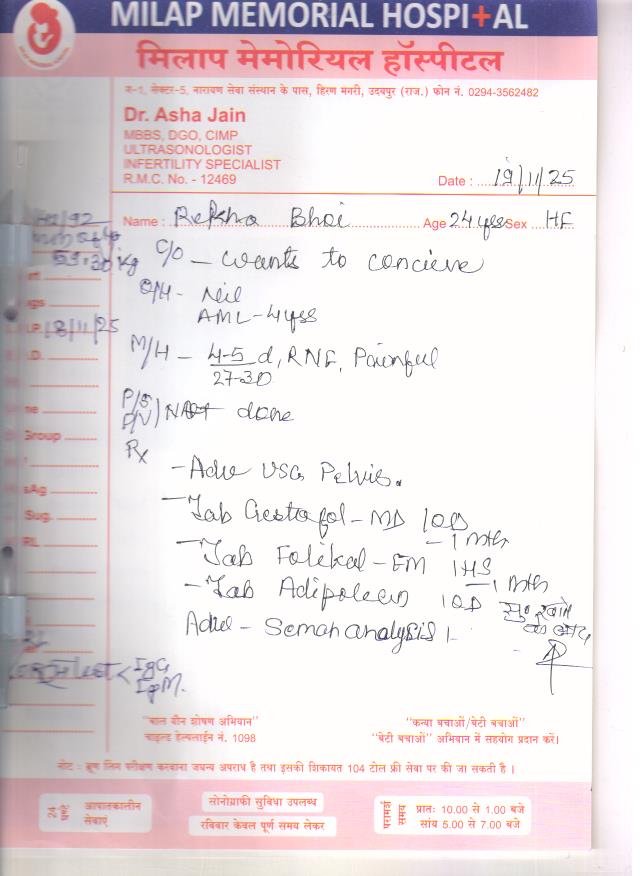 MILAP MEMORIAL HOSPITAL
मिलाप मेमोरियल हॉस्पीटल
क-1, सेक्टर-5, नारायण सेवा संस्थान के पास, हिरण मगरी, उदयपुर (राज.) फोन नं. 0294-3562482
Dr. Asha Jain
MBBS, DGO, CIMP
ULTRASONOLOGIST
INFERTILITY SPECIALIST
R.M.C. No. - 12469
Date : 19/11/25
Name : Rekha Bhoi Age 24 yrs Sex HF
53.30 kg
C/O - wants to concieve
O/H - Nil
AML - 4 yrs
18/11/25
M/H - 4-5 d, RNF, Painful
27-30
P/S
P/V) Not done
Group
Rx
- Adv USG Pelvis.
sAg
- Tab Gestofol - MD 1OD
Sug.
- 1 mth
- Tab Folikal - FM 1HS
- 1 mth
- Tab 1OD
Adv - Seman analysis
IgG
IgM.
"बाल यौन शोषण अभियान"
चाइल्ड हेल्पलाईन नं. 1098
"कन्या बचाओं/बेटी बचाओं"
"बेटी बचाओं" अभियान में सहयोग प्रदान करें।
नोट : भ्रूण लिंग परीक्षण करवाना जघन्य अपराध है तथा इसकी शिकायत 104 टोल फ्री सेवा पर की जा सकती है ।
24 घण्टे
आपातकालीन
सेवाएं
सोनोग्राफी सुविधा उपलब्ध
रविवार केवल पूर्ण समय लेकर
परामर्श समय
प्रातः 10.00 से 1.00 बजे
सांय 5.00 से 7.00 बजे